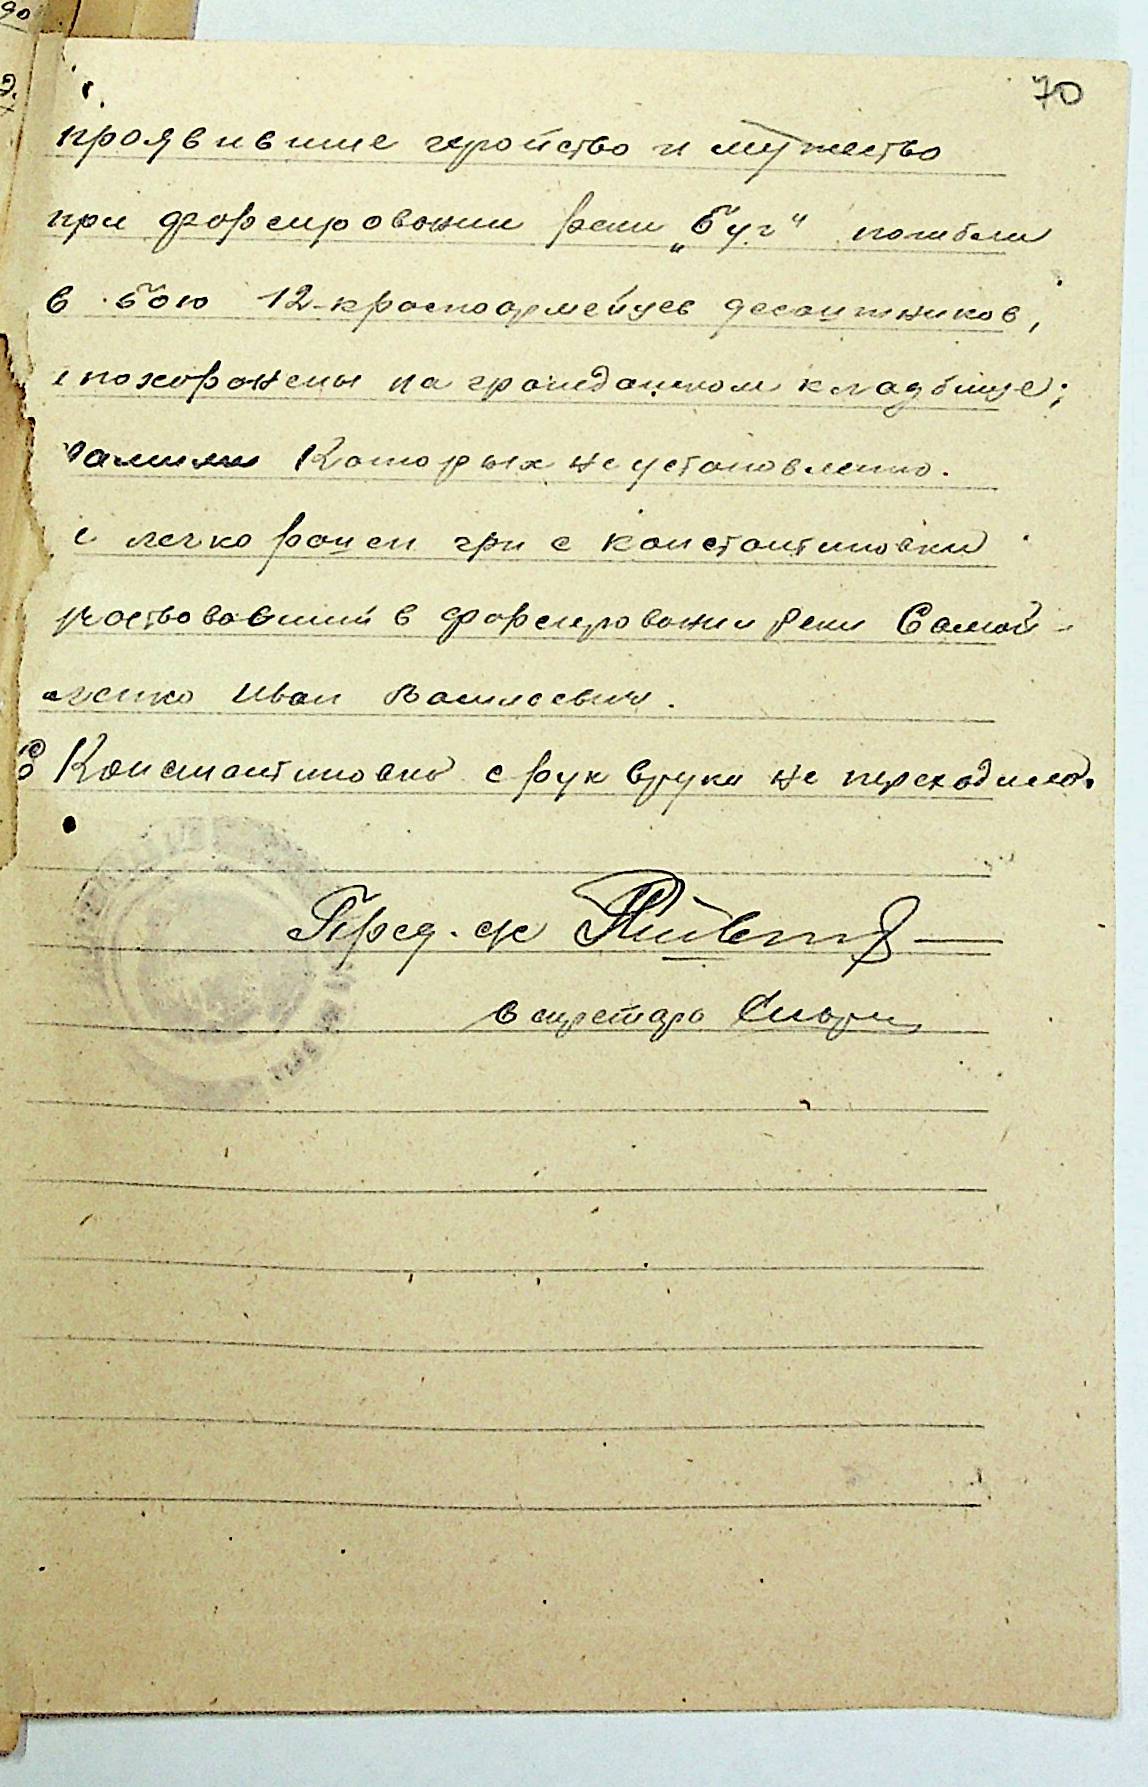 70
проявившие геройство и мужество
при форсировании реки „Буг“ погибли
в бою 12-красноармейцев десантников,
похоронены на гражданском кладбище;
Которых не установленно.
легко ранен гри с константиновки
участвовавший в форсировании реки Самой-
ленко Иван Василевич.
Константиновка с рук вруки не переходило.
Пред. с/с
секретарь